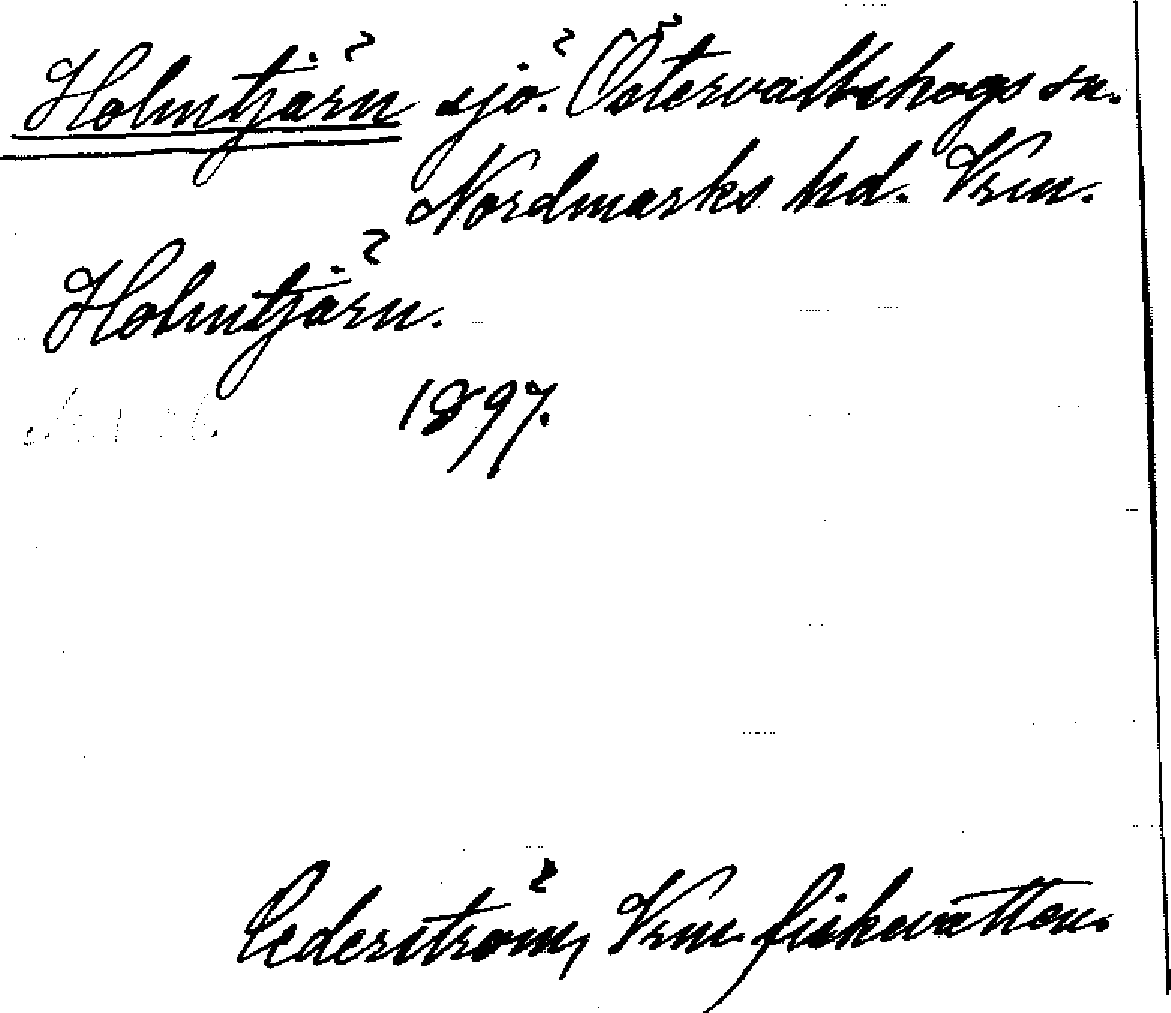 Holmtjärn sjö. Östervallskogs sn.
Nordmarks hd. Vrm.
Holmtjärn.
1897.
Cederström, Vrm. fiskevatten.